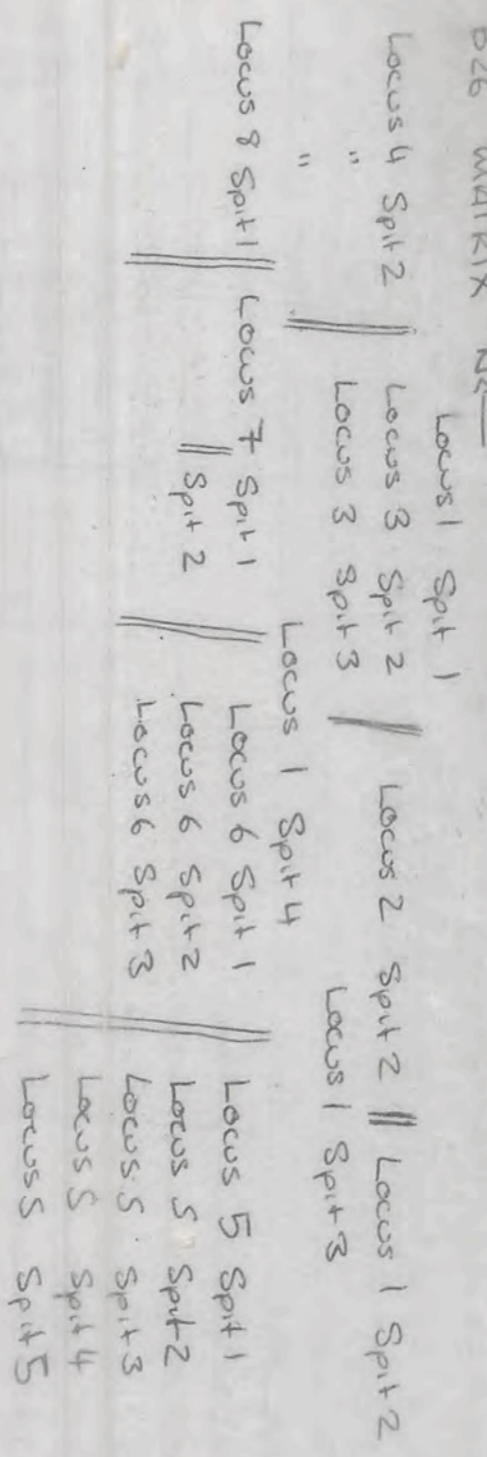 B26 MATRIX
Locus 1 Spit 1
Locus 4 Spit 2 || Locus 3 Spit 2 | Locus 2 Spit 2 || Locus 1 Spit 2
" Locus 3 Spit 3 Locus 1 Spit 3
" Locus 1 Spit 4
Locus 8 Spit 1 || Locus 7 Spit 1 || Locus 6 Spit 1 || Locus 5 Spit 1
|| Spit 2 Locus 6 Spit 2 Locus 5 Spit 2
Locus 6 Spit 3 Locus 5 Spit 3
Locus 5 Spit 4
Locus 5 Spit 5